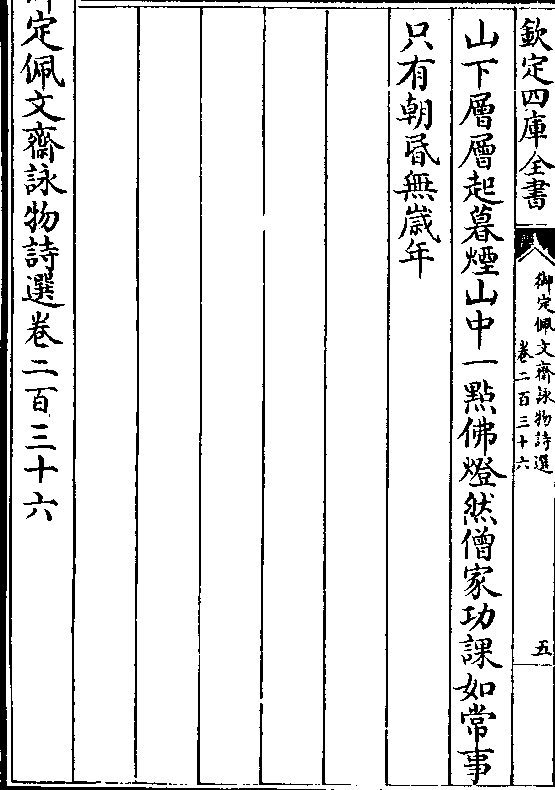 欽定四庫全書
御定佩文齋詠物詩選
卷二百三十六
五
山下層層起暮煙山中一點佛燈然僧家功課如常事
只有朝昏無歲年
御定佩文齋詠物詩選卷二百三十六